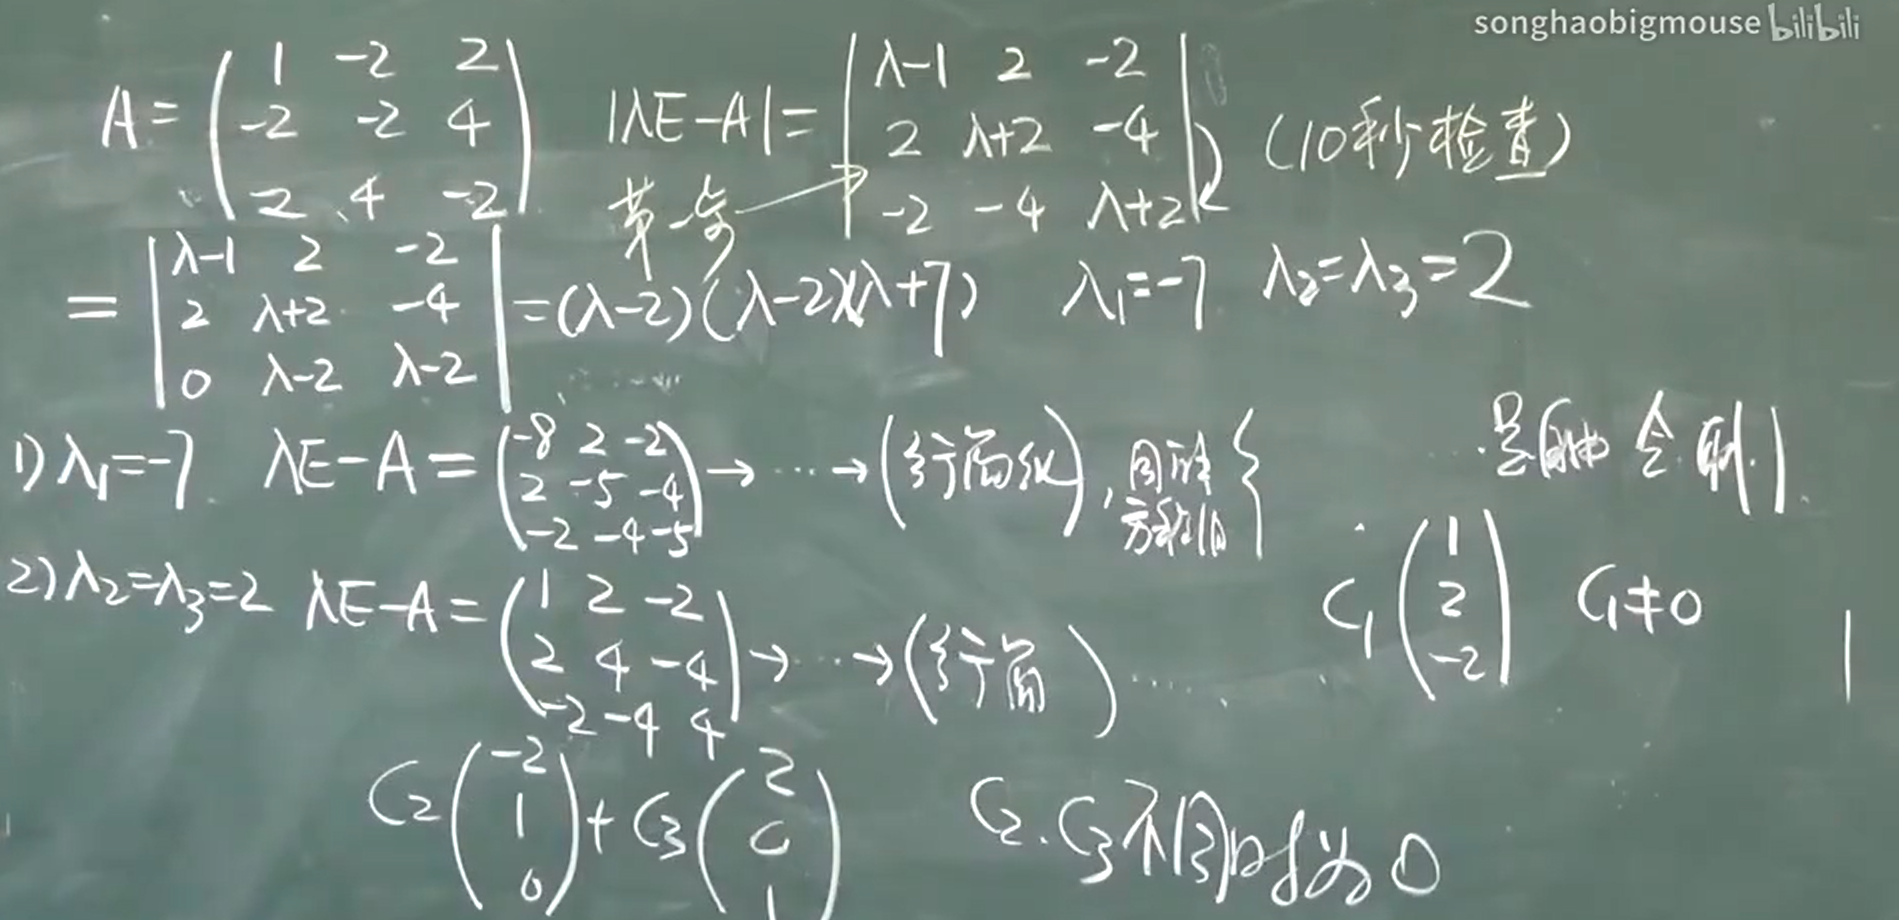 songhaobigmouse bilibili
A = ( 1 -2 2 ; -2 -2 4 ; -2 4 -2 ) |λE-A| = | λ-1 2 -2 ; 2 λ+2 -4 ; -2 -4 λ+2 | (10秒检查)
第一步
= | λ-1 2 -2 ; 2 λ+2 -4 ; 0 λ-2 λ-2 | = (λ-2)(λ-2)(λ+7) λ₁=-7 λ₂=λ₃=2
1) λ₁=-7 λE-A = ( -8 2 -2 ; 2 -5 -4 ; -2 -4 -5 ) → ⋯ → (行简化), 同解方程组 {
C₁ ( 1 ; 2 ; -2 ) C₁≠0
2) λ₂=λ₃=2 λE-A = ( 1 2 -2 ; 2 4 -4 ; -2 -4 4 ) → ⋯ → (行简) ⋯⋯
C₂ ( -2 ; 1 ; 0 ) + C₃ ( 2 ; 0 ; 1 ) C₂.C₃不同时为0